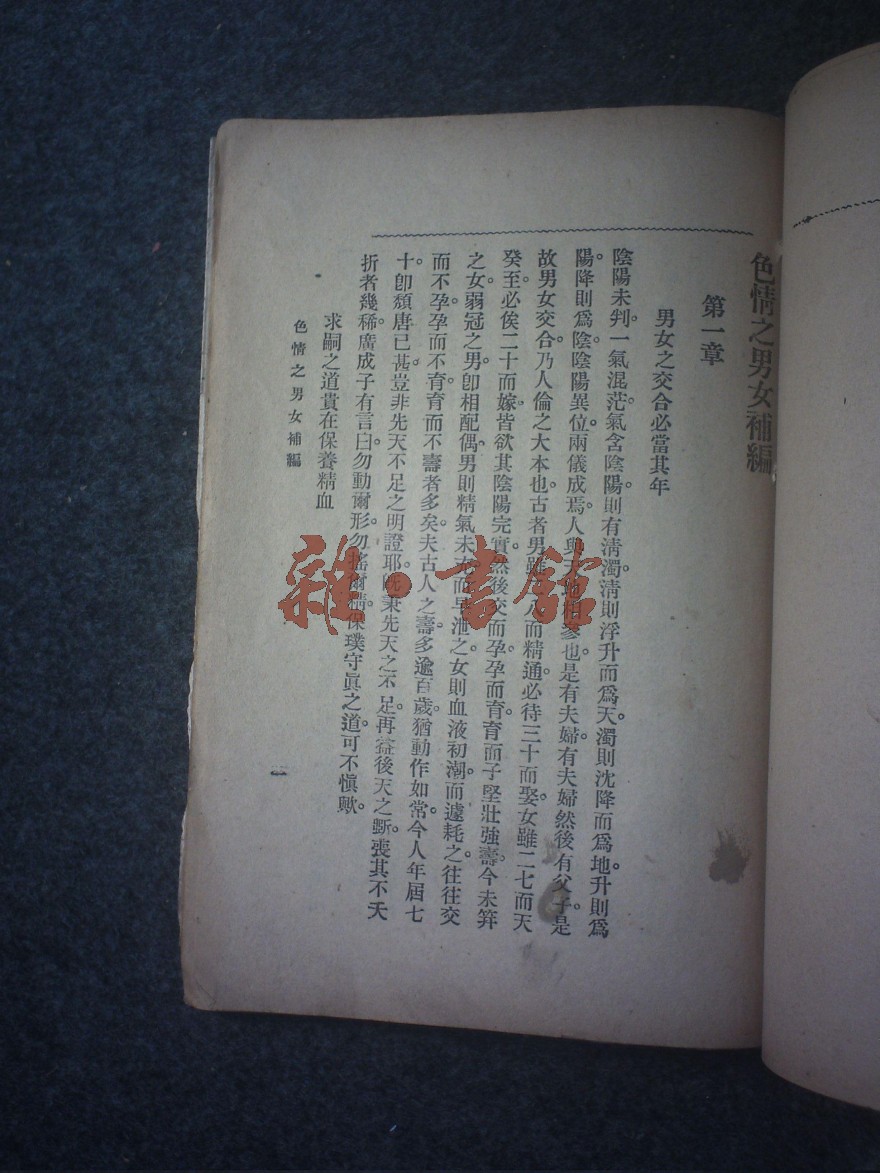 色情之男女補編
第一章
男女之交合必當其年
陰陽未判。一氣混茫。氣含陰陽。則有淸濁。淸則浮升而爲天。濁則沈降而爲地。升則爲
陽。降則爲陰。陰陽異位。兩儀成焉。人與天地相參也。是有夫婦。有夫婦然後有父子。是
故男女交合。乃人倫之大本也。古者男雖二八而精通。必待三十而娶。女雖二七而天
癸至。必俟二十而嫁。皆欲其陰陽完實。然後交而孕。孕而育。育而子堅壯強壽。今未笄
之女。弱冠之男。卽相配偶。男則精氣未充而早泄之。女則血液初潮。而遽耗之。往往交
而不孕。孕而不育。育而不壽者多矣。夫古人之壽。多逾百歲。猶動作如常。今人年屆七
十。卽頹唐已甚。豈非先天不足之明證耶。旣秉先天之不足。再益後天之斲喪。其不夭
折者幾稀。廣成子有言曰。勿動爾形。勿搖爾精。保璞守眞之道。可不愼歟。
求嗣之道貴在保養精血
色情之男女補編
一
雜·書館